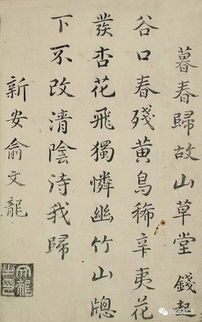 暮春歸故山草堂 錢起
谷口春殘黄鳥稀辛夷花
發杏花飛獨憐幽竹山牕
下不改清陰待我歸
新安俞文龍